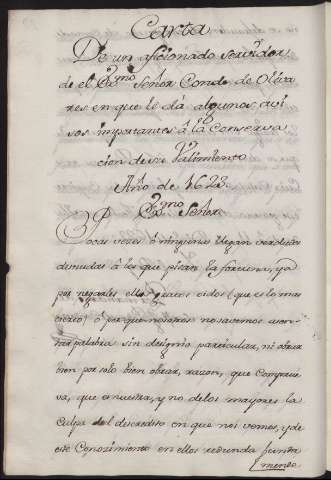 Carta
De un aficionado servidor
de el Exmo Señor Conde de Oliva
res en que le dá algunos avi
sos importantes â la conserva
cion de su Valimiento
Año de 1623.
Exmo Señor
Pocas veces ô ningunas llegan verdades
desnudas â los que pisan la fortuna, ya
por negarles ellos gratos oidos (que es lo mas
cierto) ô por que nosotros no savemos
palabra sin designio particular, ni obrar
bien por solo bien obrar, razon, que comprueva,
que es nuestra, y no delos mayores la
culpa del descredito en que nos vemos, y de
este Conocimiento en ellos redunda junta
mente